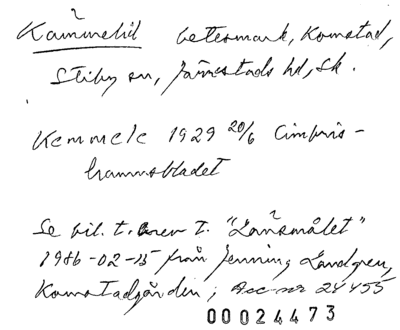 Kämmelid betesmark, Komstad,
Stiby sn, Järrestads hd, Sk.
Kemmele 1929 20/6 Cimbris-
hamnsbladet
Se bil. t. brev t. "Lansmålet"
1986-02-15 från Jenning Lundgren,
Komstadgården; Acc-nr 24455
00024473